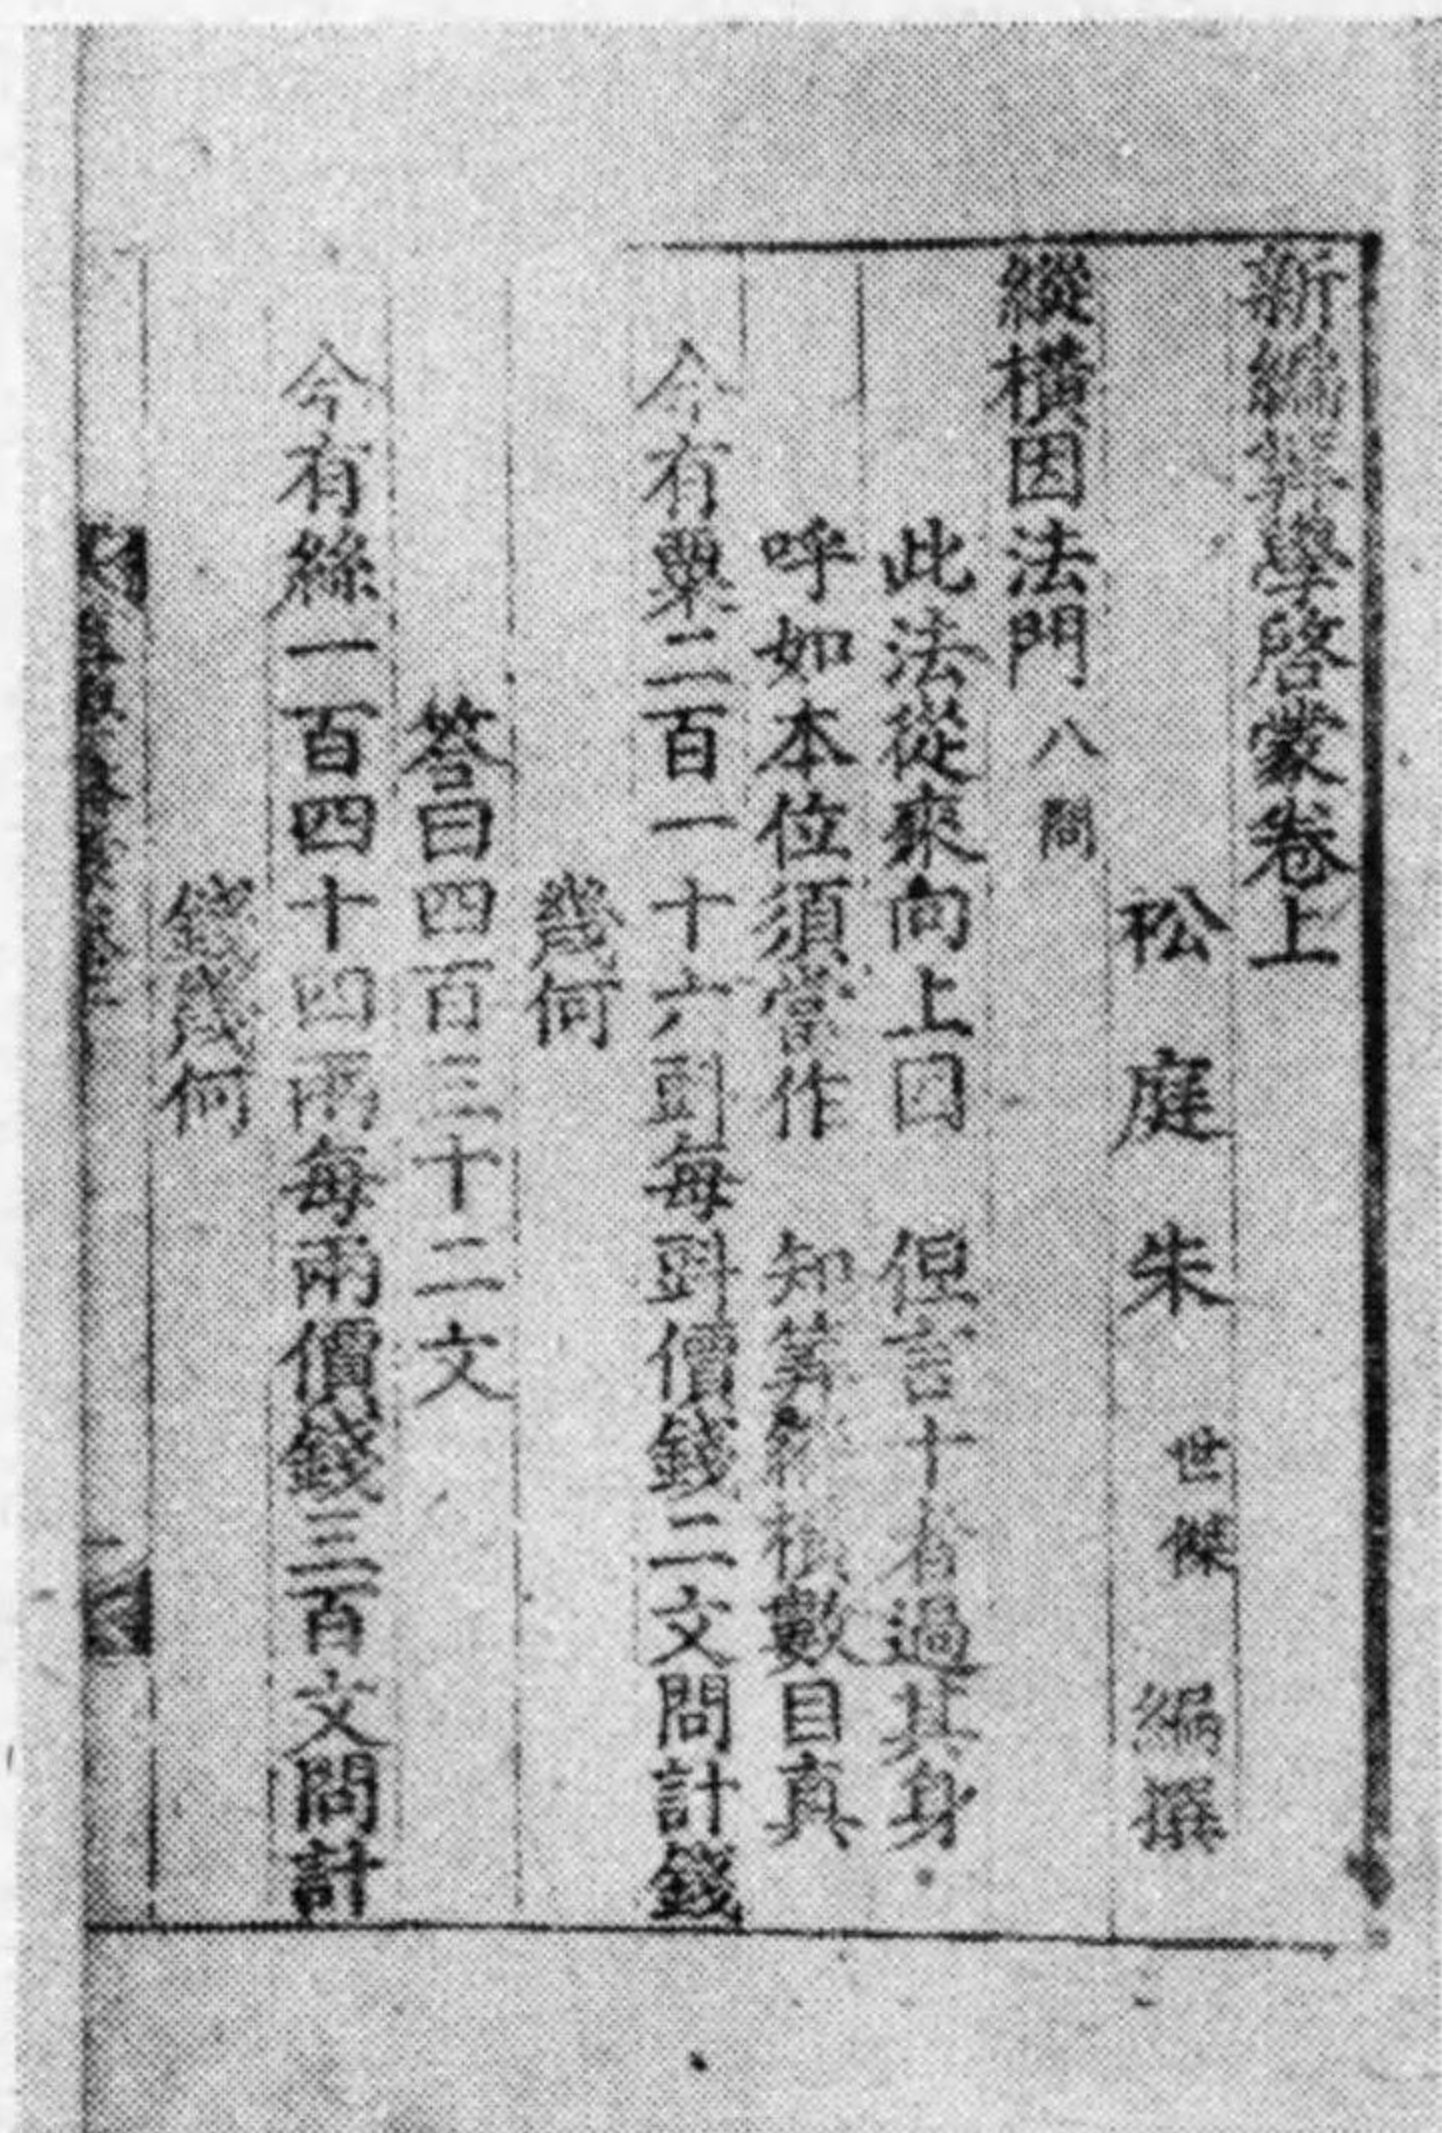 新編筭學啓蒙卷上
松庭朱世傑編撰
縱橫因法門八問
此法從來向上因 但言十者過其身
呼如本位須當作 知筭縱橫數目真
今有粟二百一十六㪷每㪷價錢二文問計錢
幾何
荅曰四百三十二文
今有絲一百四十四兩每兩價錢三百文問計
錢幾何